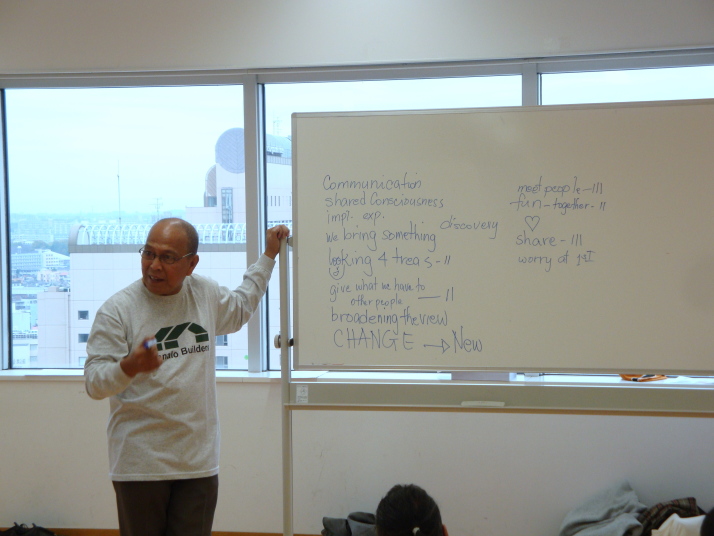 Communication
shared Consciousness
impl. exp.
discovery
we bring something
looking 4 treas - 11
give what we have to
other people — 11
broadening the view
CHANGE → New
meet people - 111
fun - together - 11
♡
share - 111
worry at 1st
Builders